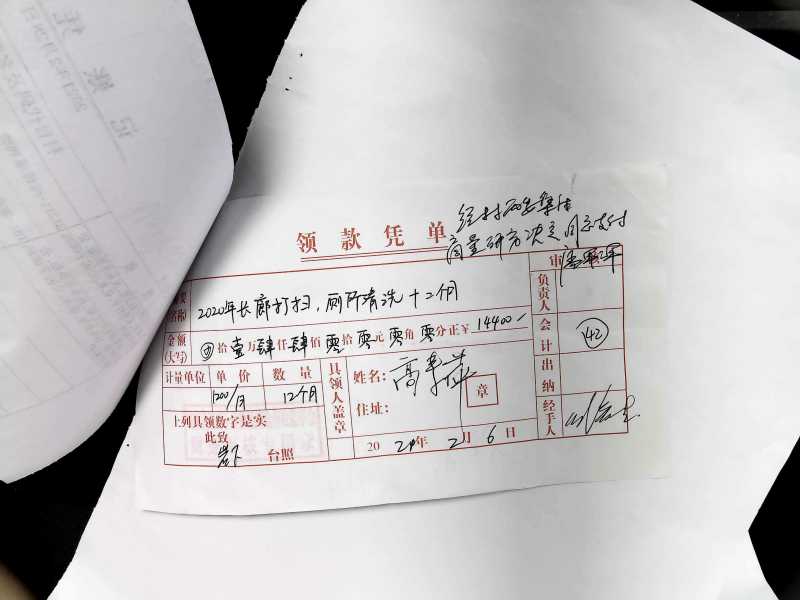 领款凭单
经村两委集体
商量研究决定同意支付
摘要
(名称)
2020年长廊打扫，厕所清洗十二个月
金额
(大写)
拾壹万肆仟肆佰零拾零元零角零分正¥ 14400
计量单位 单价 数量
1200/月 12个月
上列具领数字是实
此致
台照
具领人盖章
姓名：高
住址：
章
2021年2月6日
审
负责人
会计
42
出纳
经手人